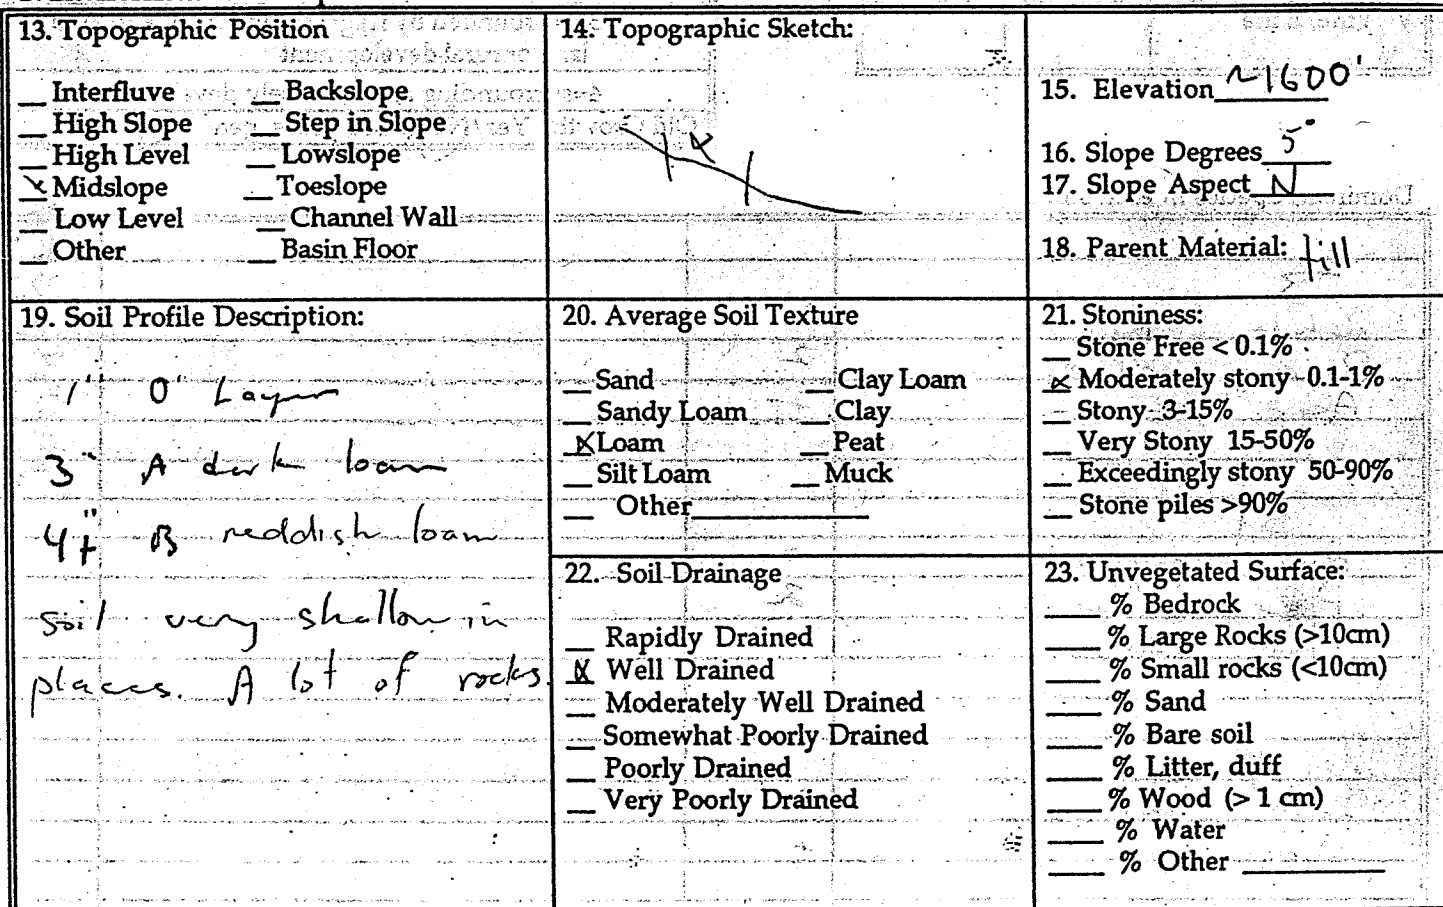 13. Topographic Position
__ Interfluve __ Backslope
__ High Slope __ Step in Slope
__ High Level __ Lowslope
x Midslope __ Toeslope
__ Low Level __ Channel Wall
__ Other __ Basin Floor
14. Topographic Sketch:
x
15. Elevation ~1600'
16. Slope Degrees 5°
17. Slope Aspect N
18. Parent Material: till
19. Soil Profile Description:
1" O Layer
3" A dark loam
4"+ B reddish loam
soil very shallow in
places. A lot of rocks.
20. Average Soil Texture
__ Sand __ Clay Loam
__ Sandy Loam __ Clay
x Loam __ Peat
__ Silt Loam __ Muck
__ Other__________
21. Stoniness:
__ Stone Free < 0.1%
x Moderately stony 0.1-1%
__ Stony 3-15%
__ Very Stony 15-50%
__ Exceedingly stony 50-90%
__ Stone piles >90%
22. Soil Drainage
__ Rapidly Drained
x Well Drained
__ Moderately Well Drained
__ Somewhat Poorly Drained
__ Poorly Drained
__ Very Poorly Drained
23. Unvegetated Surface:
____ % Bedrock
____ % Large Rocks (>10cm)
____ % Small rocks (<10cm)
____ % Sand
____ % Bare soil
____ % Litter, duff
____ % Wood (> 1 cm)
____ % Water
____ % Other __________